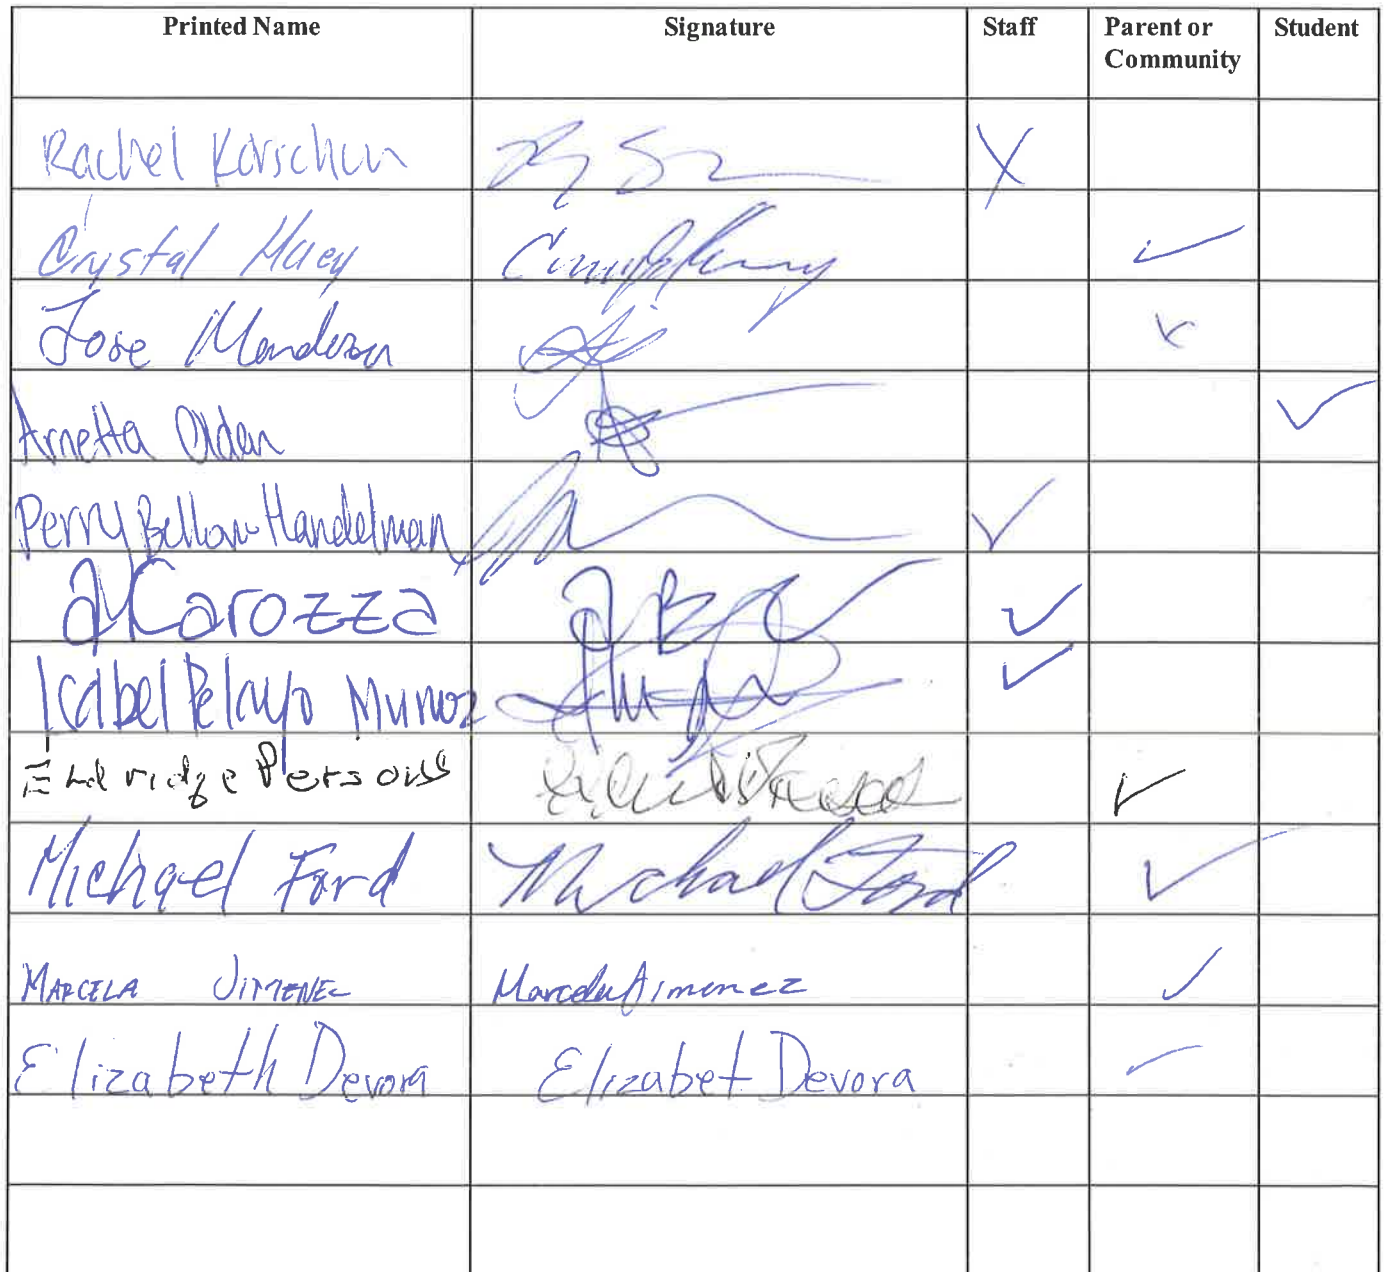 Printed Name Signature Staff Parent or Community Student
Rachel Korschun X
Crystal Huey ✓
Jose Mendoza x
Arnetta Olden ✓
Perry Bellow-Handelman ✓
A Carozza ✓
Isabel Pelayo Munoz ✓
Eldridge Persons ✓
Michael Ford Michael Ford ✓
MARCELA JIMENEZ Marcela Jimenez ✓
Elizabeth Devora Elizabet Devora ✓